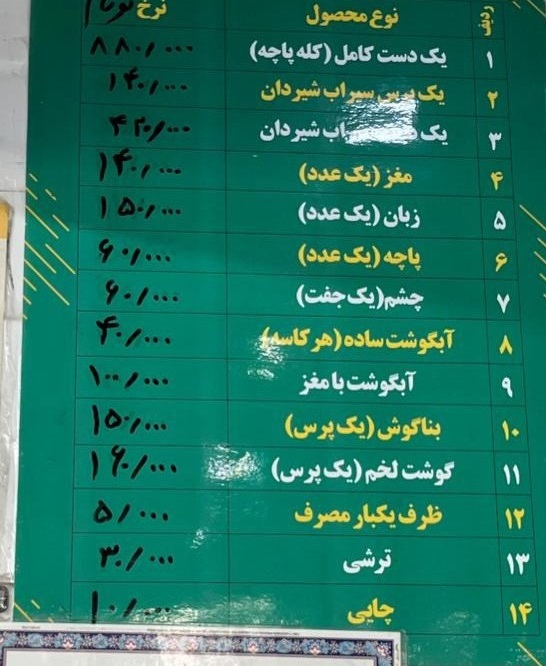 ردیف نوع محصول نرخ تومان
۱ یک دست کامل (کله پاچه) ۸۸۰/۰۰۰
۲ یک پرس سیراب شیردان ۱۴۰/۰۰۰
۳ یک شیردان ۴۲۰/۰۰۰
۴ مغز (یک عدد) ۱۴۰/۰۰۰
۵ زبان (یک عدد) ۱۵۰/۰۰۰
۶ پاچه (یک عدد) ۶۰/۰۰۰
۷ چشم (یک جفت) ۶۰/۰۰۰
۸ آبگوشت ساده (هر کاسه) ۴۰/۰۰۰
۹ آبگوشت با مغز ۱۰۰/۰۰۰
۱۰ بناگوش (یک پرس) ۱۵۰/۰۰۰
۱۱ گوشت لخم (یک پرس) ۱۶۰/۰۰۰
۱۲ ظرف یکبار مصرف ۵/۰۰۰
۱۳ ترشی ۳۰/۰۰۰
۱۴ چایی ۱۰/۰۰۰